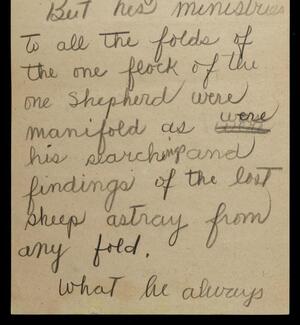 But his ministries
to all the folds of
the one flock of the
one Shepherd were
manifold as were
his searching and
findings of the lost
sheep astray from
any fold.
What he always